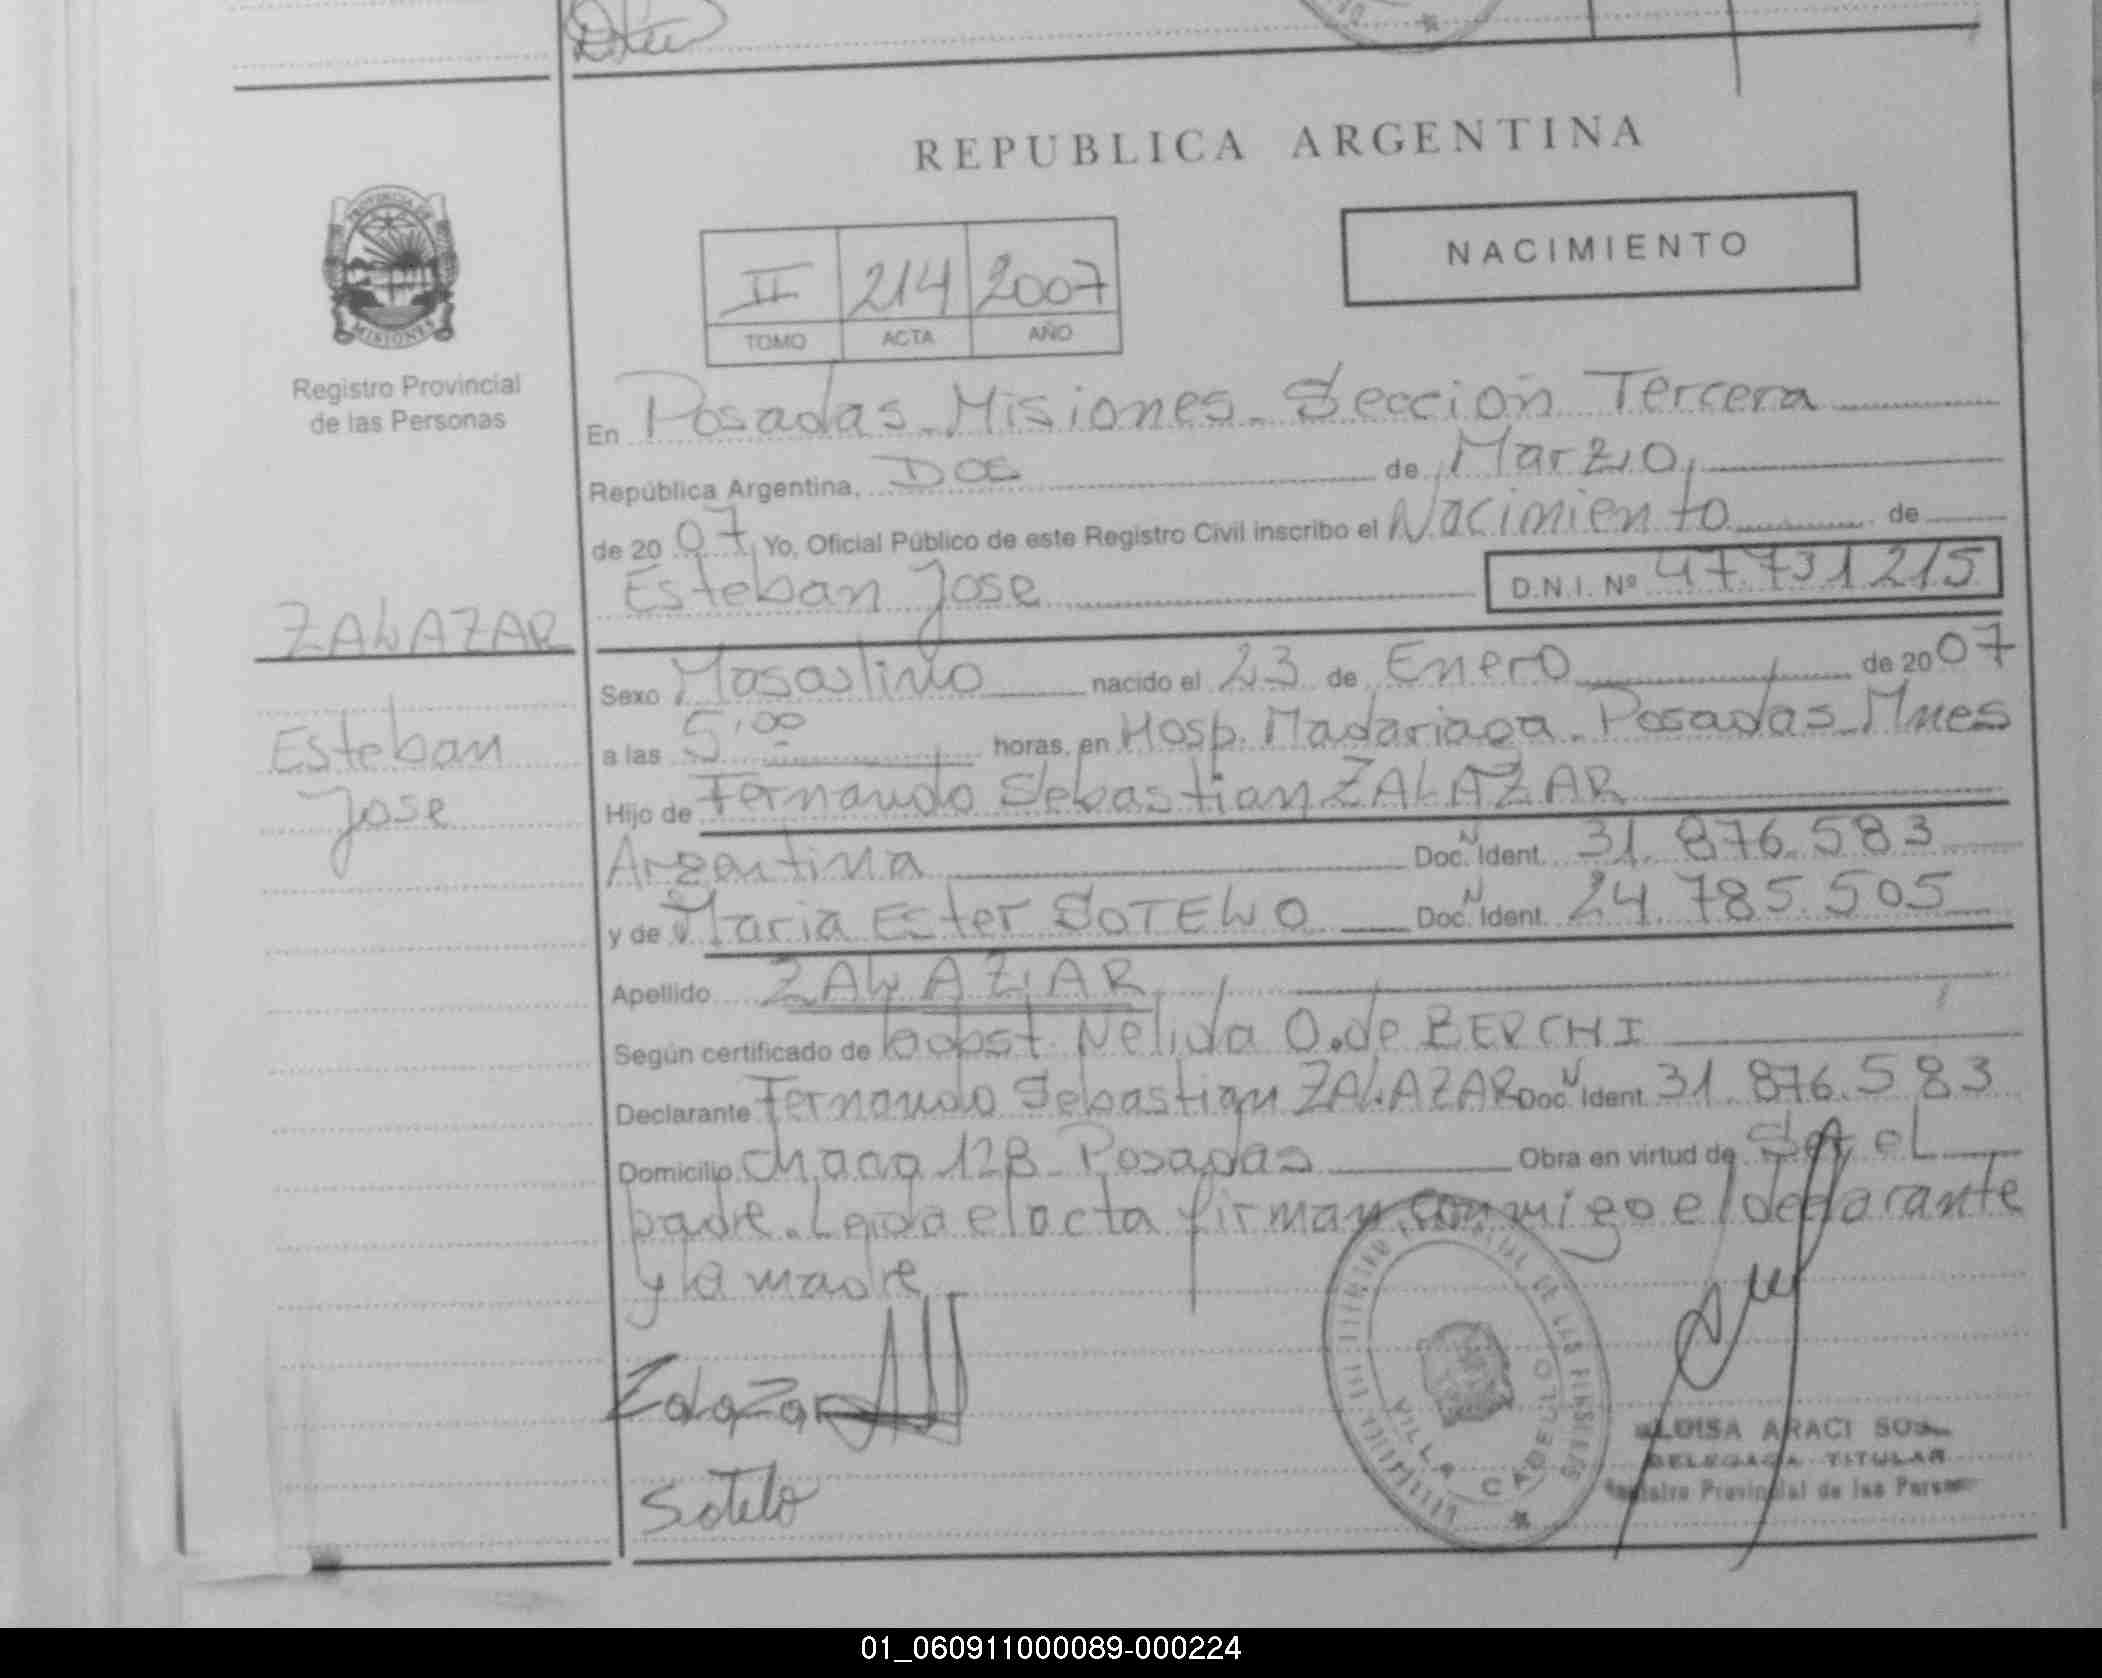 REPUBLICA ARGENTINA
PROVINCIA DE
MISIONES
Registro Provincial
de las Personas
NACIMIENTO
II 214 2007
TOMO ACTA AÑO
En Posadas Misiones Sección Tercera
República Argentina, Dos de Marzo
de 20 07 Yo, Oficial Público de este Registro Civil inscribo el Nacimiento de
Esteban Jose D.N.I. Nº 47731215
ZALAZAR
Esteban
Jose
Sexo Masculino nacido el 23 de Enero de 20 07
a las 5,00 horas, en Hosp. Madariaga. Posadas Mnes
Hijo de Fernando Sebastian ZALAZAR
Argentina Doc. N Ident. 31.876.583
y de Maria Ester SOTELO Doc. N Ident. 24.785.505
Apellido ZALAZAR
Según certificado de obst. Nelida O. de BERCHI
Declarante Fernando Sebastian ZALAZAR Doc. N Ident. 31.876.583
Domicilio Chaco 128 Posadas Obra en virtud de Ser el
padre. Leida el acta firman conmigo el declarante
y la madre
Zalazar
Sotelo
DE LAS PERSONAS
VILLA CABELLO
LUISA ARACI
DELEGADA TITULAR
Registro Provincial de las
01_060911000089-000224